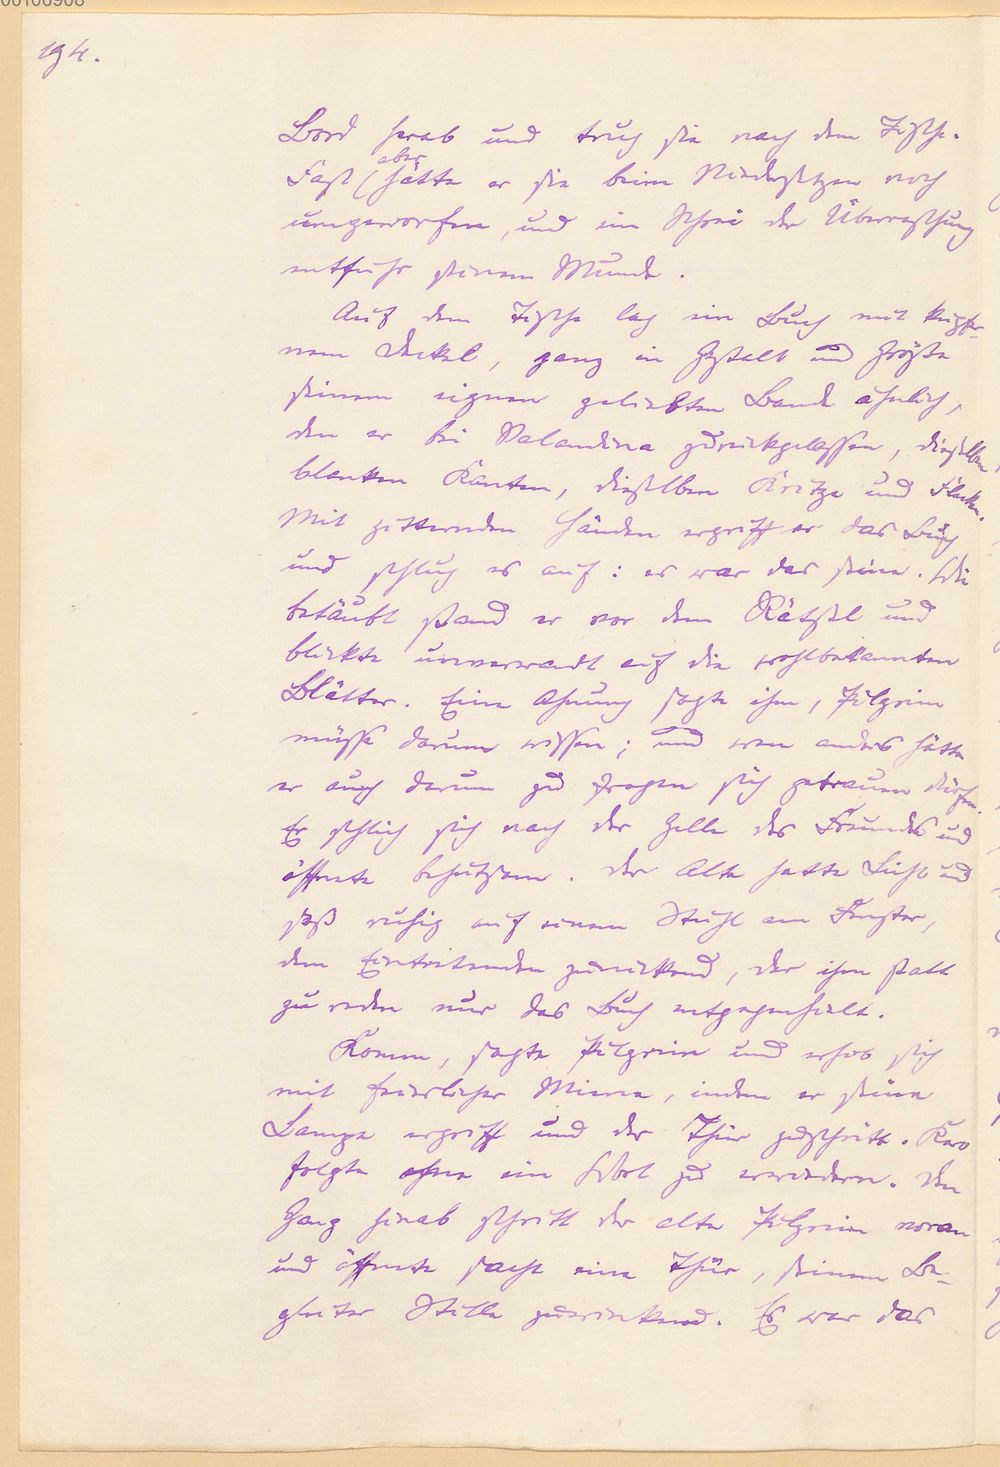 00106908
194.
Bord herab und trug sie nach dem Tische.
Fast (aber hätte er sie beim Niedersetzen noch
umgeworfen, und ein Schrei der Überraschung
entfuhr seinem Munde.
Auf dem Tische lag ein Buch mit kupfer-
nem Deckel, ganz in Gestalt und Größe
seinem eignen geliebten Bande ähnlich,
den er bei Valandina zurückgelassen, dieselben
blanken Kanten, dieselben Kritze und Flecken.
Mit zitternden Händen ergriff er das Buch
und schlug es auf: es war das seine. Wie
betäubt stand er vor dem Rätsel und
blickte unverwandt auf die wohlbekannten
Blätter. Eine Ahnung sagte ihm, Pilgrim
müsse darum wissen; und wen anders hätte
er auch darum zu fragen sich getrauen dürfen.
Er schlich sich nach der Zelle des Freundes und
öffnete behutsam. Der Alte hatte Licht und
saß ruhig auf einem Stuhl am Fenster,
dem Eintretenden zunickend, der ihm statt
zu reden nur das Buch entgegenhielt.
Komm, sagte Pilgrim und erhob sich
mit feierlicher Miene, indem er seine
Lampe ergriff und der Thür zuschritt. Karo
folgte ohne ein Wort zu erwiedern. Den
Gang hinab schritt der alte Pilgrim voran
und öffnete sacht eine Thür, seinem Be-
gleiter Stille zuwinkend. Es war das